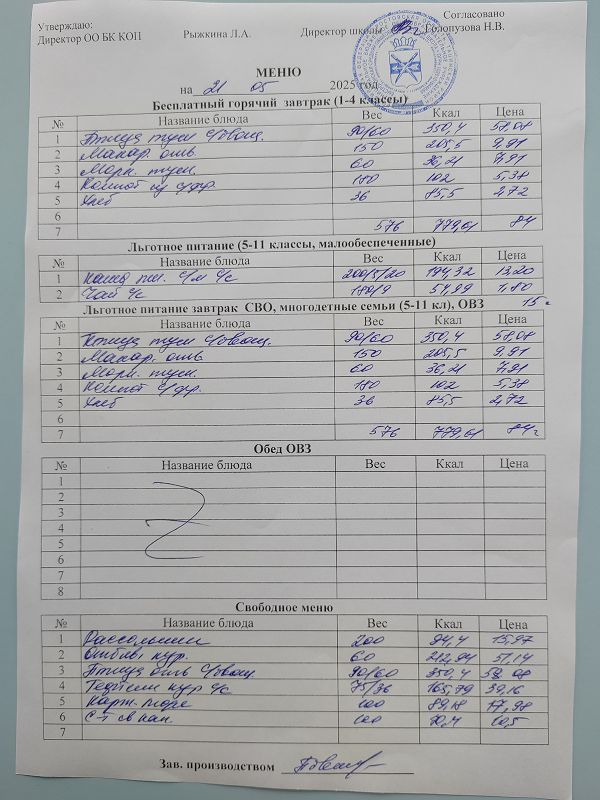 Утверждаю:
Директор ОО БК КОП Рыжкина Л.А.
Согласовано
Директор школы Голопузова Н.В.
МЕНЮ
на 21 05 2025 год
Бесплатный горячий завтрак (1-4 классы)
№ Название блюда Вес Ккал Цена
1 Птица туш с/овощ. 90/60 350,4 58,08
2 Макар. отв. 150 205,5 9,91
3 Морк. туш. 60 36,21 7,91
4 Компот из с/фр. 180 102 5,38
5 Хлеб 36 85,5 2,72
6
7 576 779,61 84
Льготное питание (5-11 классы, малообеспеченные)
Название блюда Вес Ккал Цена
1 Каша пш. с/м с/с 200/5/20 194,32 13,20
2 Чай с/с 180/9 57,99 1,80
Льготное питание завтрак СВО, многодетные семьи (5-11 кл), ОВЗ 15
№ Название блюда Вес Ккал Цена
1 Птица туш с/овощ. 90/60 350,4 58,08
2 Макар. отв. 150 205,5 9,91
3 Морк. туш. 60 36,21 7,91
4 Компот с/фр. 180 102 5,38
5 Хлеб 36 85,5 2,72
6
7 576 779,61 84
Обед ОВЗ
№ Название блюда Вес Ккал Цена
1
2
3
4
5
6
7
8
Свободное меню
№ Название блюда Вес Ккал Цена
1 Рассольник 200 94,4 15,97
2 кур. 60 212,94 51,14
3 Птица отв с/овощ. 90/60 350,4 58,08
4 кур с/с 75/36 165,79 39,16
5 Карт. пюре 100 89,18 17,98
6 С-т св кап. 100 70,4 10,5
7
Зав. производством